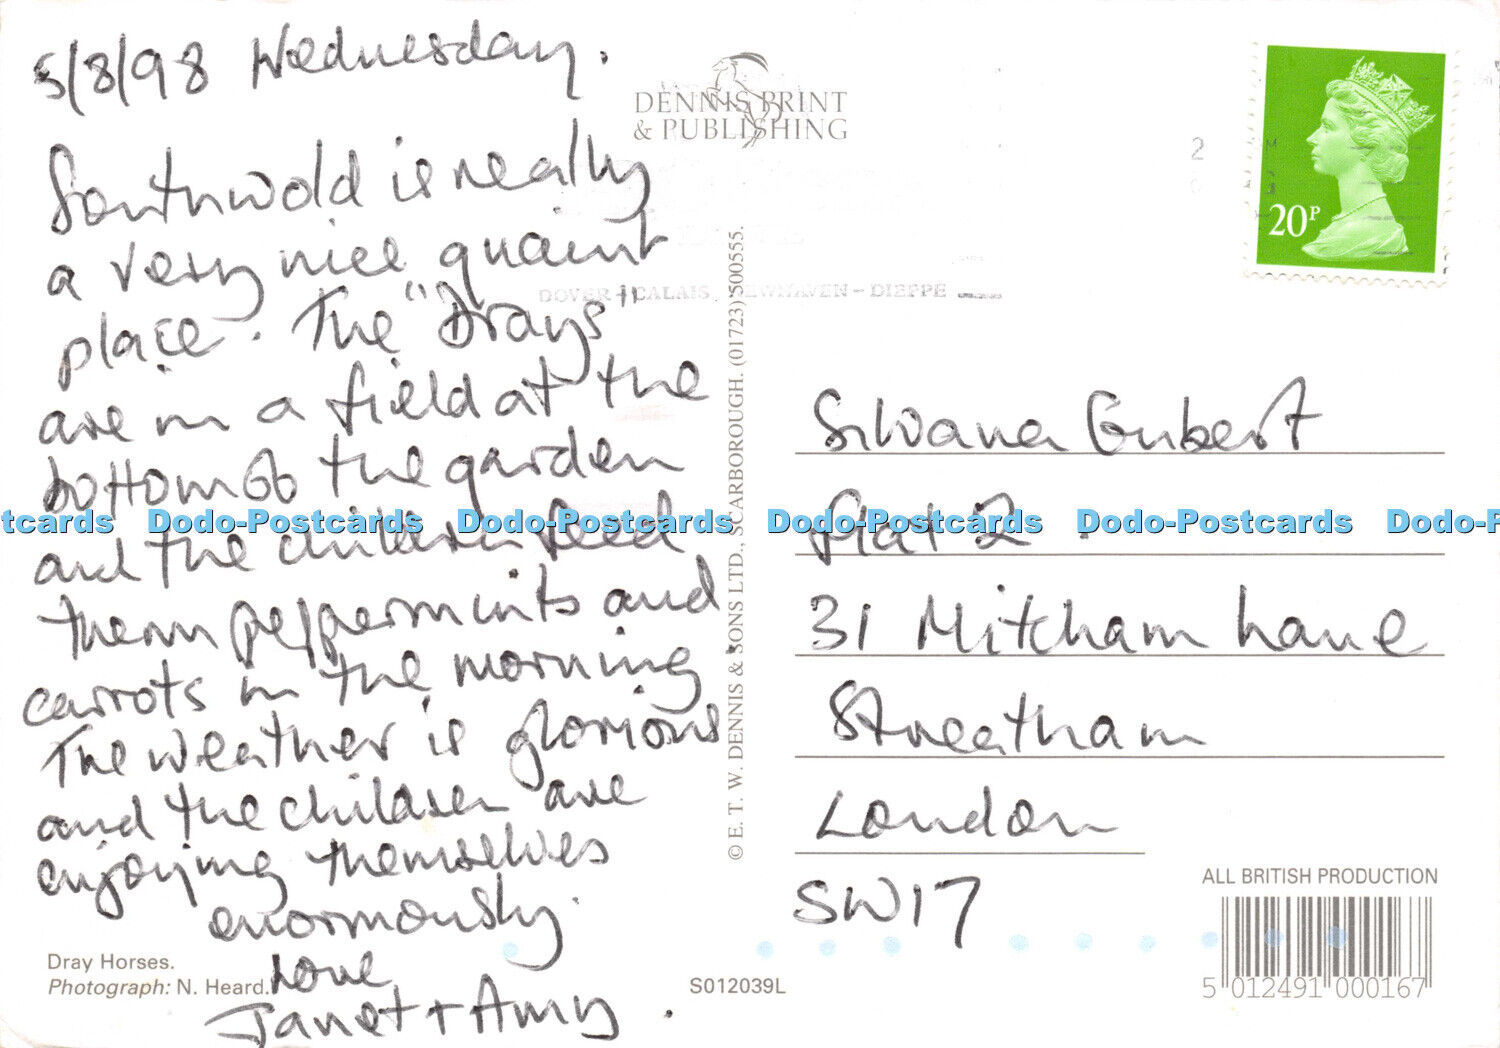 5/8/98 Wednesday.
Southwold is really
a very nice quaint
place. The "Drays"
are in a field at the
bottom of the garden
and the children feed
them peppermints and
carrots in the morning.
The weather is glorious
and the children are
enjoying themselves
enormously.
Love
Janet + Amy.
Dray Horses.
Photograph: N. Heard.
DENNIS PRINT
& PUBLISHING
DOVER - CALAIS, NEWHAVEN - DIEPPE
© E. T. W. DENNIS & SONS LTD., SCARBOROUGH. (01723) 500555.
S012039L
20P
Silvana Gubert
Flat 2.
31 Mitcham Lane
Streatham
London
SW17
ALL BRITISH PRODUCTION
5 012491 000167
tcards Dodo-Postcards Dodo-Postcards Dodo-Postcards Dodo-Postcards Dodo-P